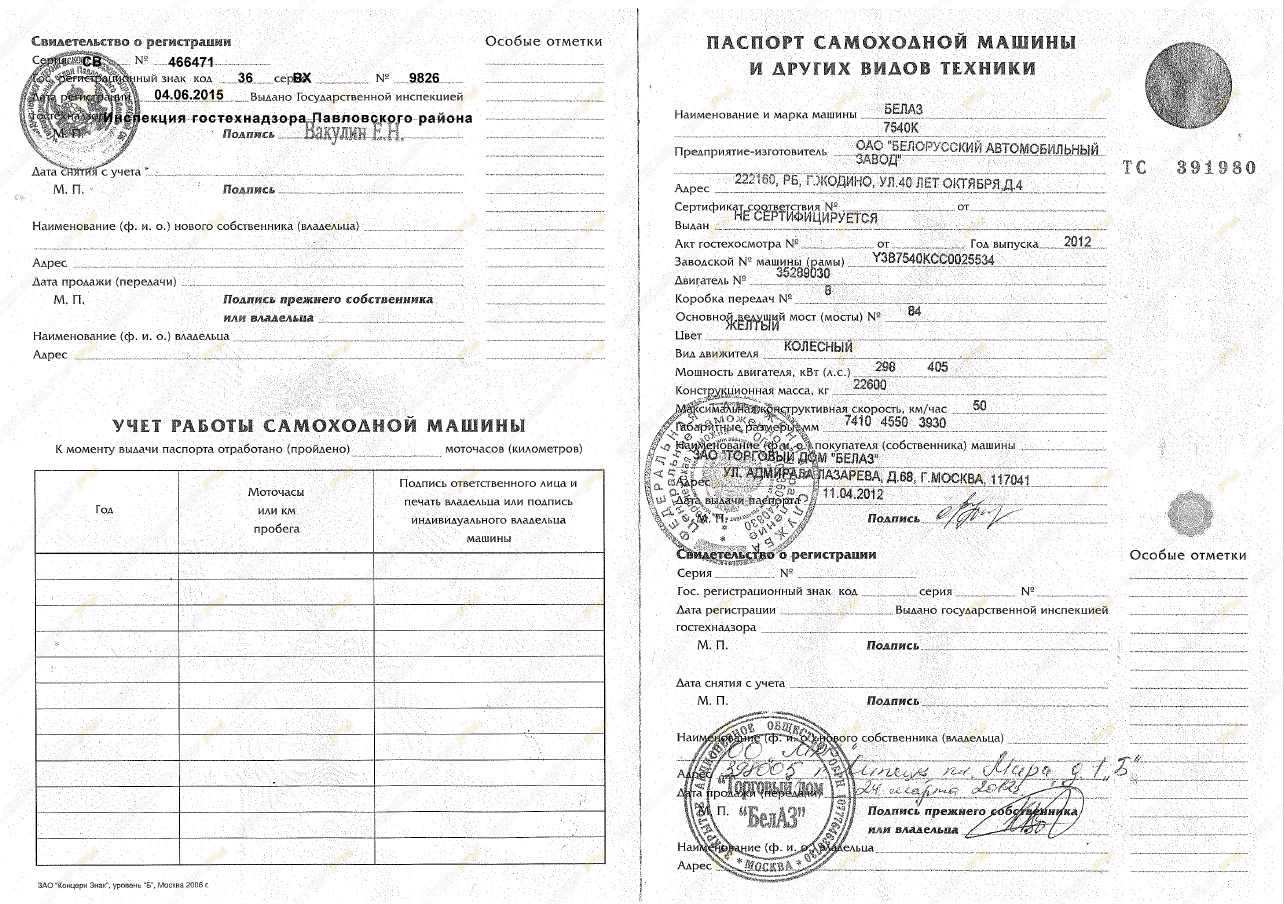 Свидетельство о регистрации
Особые отметки
Серия СВ № 466471
Гос. регистрационный знак код 36 серия ВХ № 9826
Дата регистрации 04.06.2015 Выдано Государственной инспекцией
гостехнадзора Инспекция гостехнадзора Павловского района
М. П. Подпись Вакулин Е.Н.
Дата снятия с учета
М. П. Подпись
Наименование (ф. и. о.) нового собственника (владельца)
Адрес
Дата продажи (передачи)
М. П. Подпись прежнего собственника
или владельца
Наименование (ф. и. о.) владельца
Адрес
УЧЕТ РАБОТЫ САМОХОДНОЙ МАШИНЫ
К моменту выдачи паспорта отработано (пройдено) моточасов (километров)
Год
Моточасы
или км
пробега
Подпись ответственного лица и
печать владельца или подпись
индивидуального владельца
машины
ЗАО "Концерн Знак", уровень "Б", Москва 2006 г.
ПАСПОРТ САМОХОДНОЙ МАШИНЫ
И ДРУГИХ ВИДОВ ТЕХНИКИ
ТС 391980
Наименование и марка машины БЕЛАЗ
7540К
Предприятие-изготовитель ОАО "БЕЛОРУССКИЙ АВТОМОБИЛЬНЫЙ
ЗАВОД"
Адрес 222160, РБ, Г.ЖОДИНО, УЛ.40 ЛЕТ ОКТЯБРЯ,Д.4
Сертификат соответствия № от
Выдан НЕ СЕРТИФИЦИРУЕТСЯ
Акт гостехосмотра № от Год выпуска 2012
Заводской № машины (рамы) Y3B7540KCC0025534
Двигатель № 35289030
Коробка передач № 8
Основной ведущий мост (мосты) № 84
Цвет ЖЕЛТЫЙ
Вид движителя КОЛЕСНЫЙ
Мощность двигателя, кВт (л.с.) 298 405
Конструкционная масса, кг 22600
Максимальная конструктивная скорость, км/час 50
Габаритные размеры, мм 7410 4550 3930
Наименование (ф. и. о.) покупателя (собственника) машины
ЗАО "ТОРГОВЫЙ ДОМ "БЕЛАЗ"
Адрес УЛ. АДМИРАЛА ЛАЗАРЕВА, Д.68, Г.МОСКВА, 117041
Дата выдачи паспорта 11.04.2012
М. П. Подпись
Свидетельство о регистрации
Особые отметки
Серия №
Гос. регистрационный знак код серия №
Дата регистрации Выдано государственной инспекцией
гостехнадзора
М. П. Подпись
Дата снятия с учета
М. П. Подпись
Наименование (ф. и. о.) нового собственника (владельца)
Адрес 398005 г. Липецк пл. Мира д. 1 „Б"
Дата продажи (передачи) 24 марта
М. П. Подпись прежнего собственника
или владельца
"Торговый дом
"БелАЗ"
* МОСКВА *
Наименование (ф. и. о.) владельца
Адрес